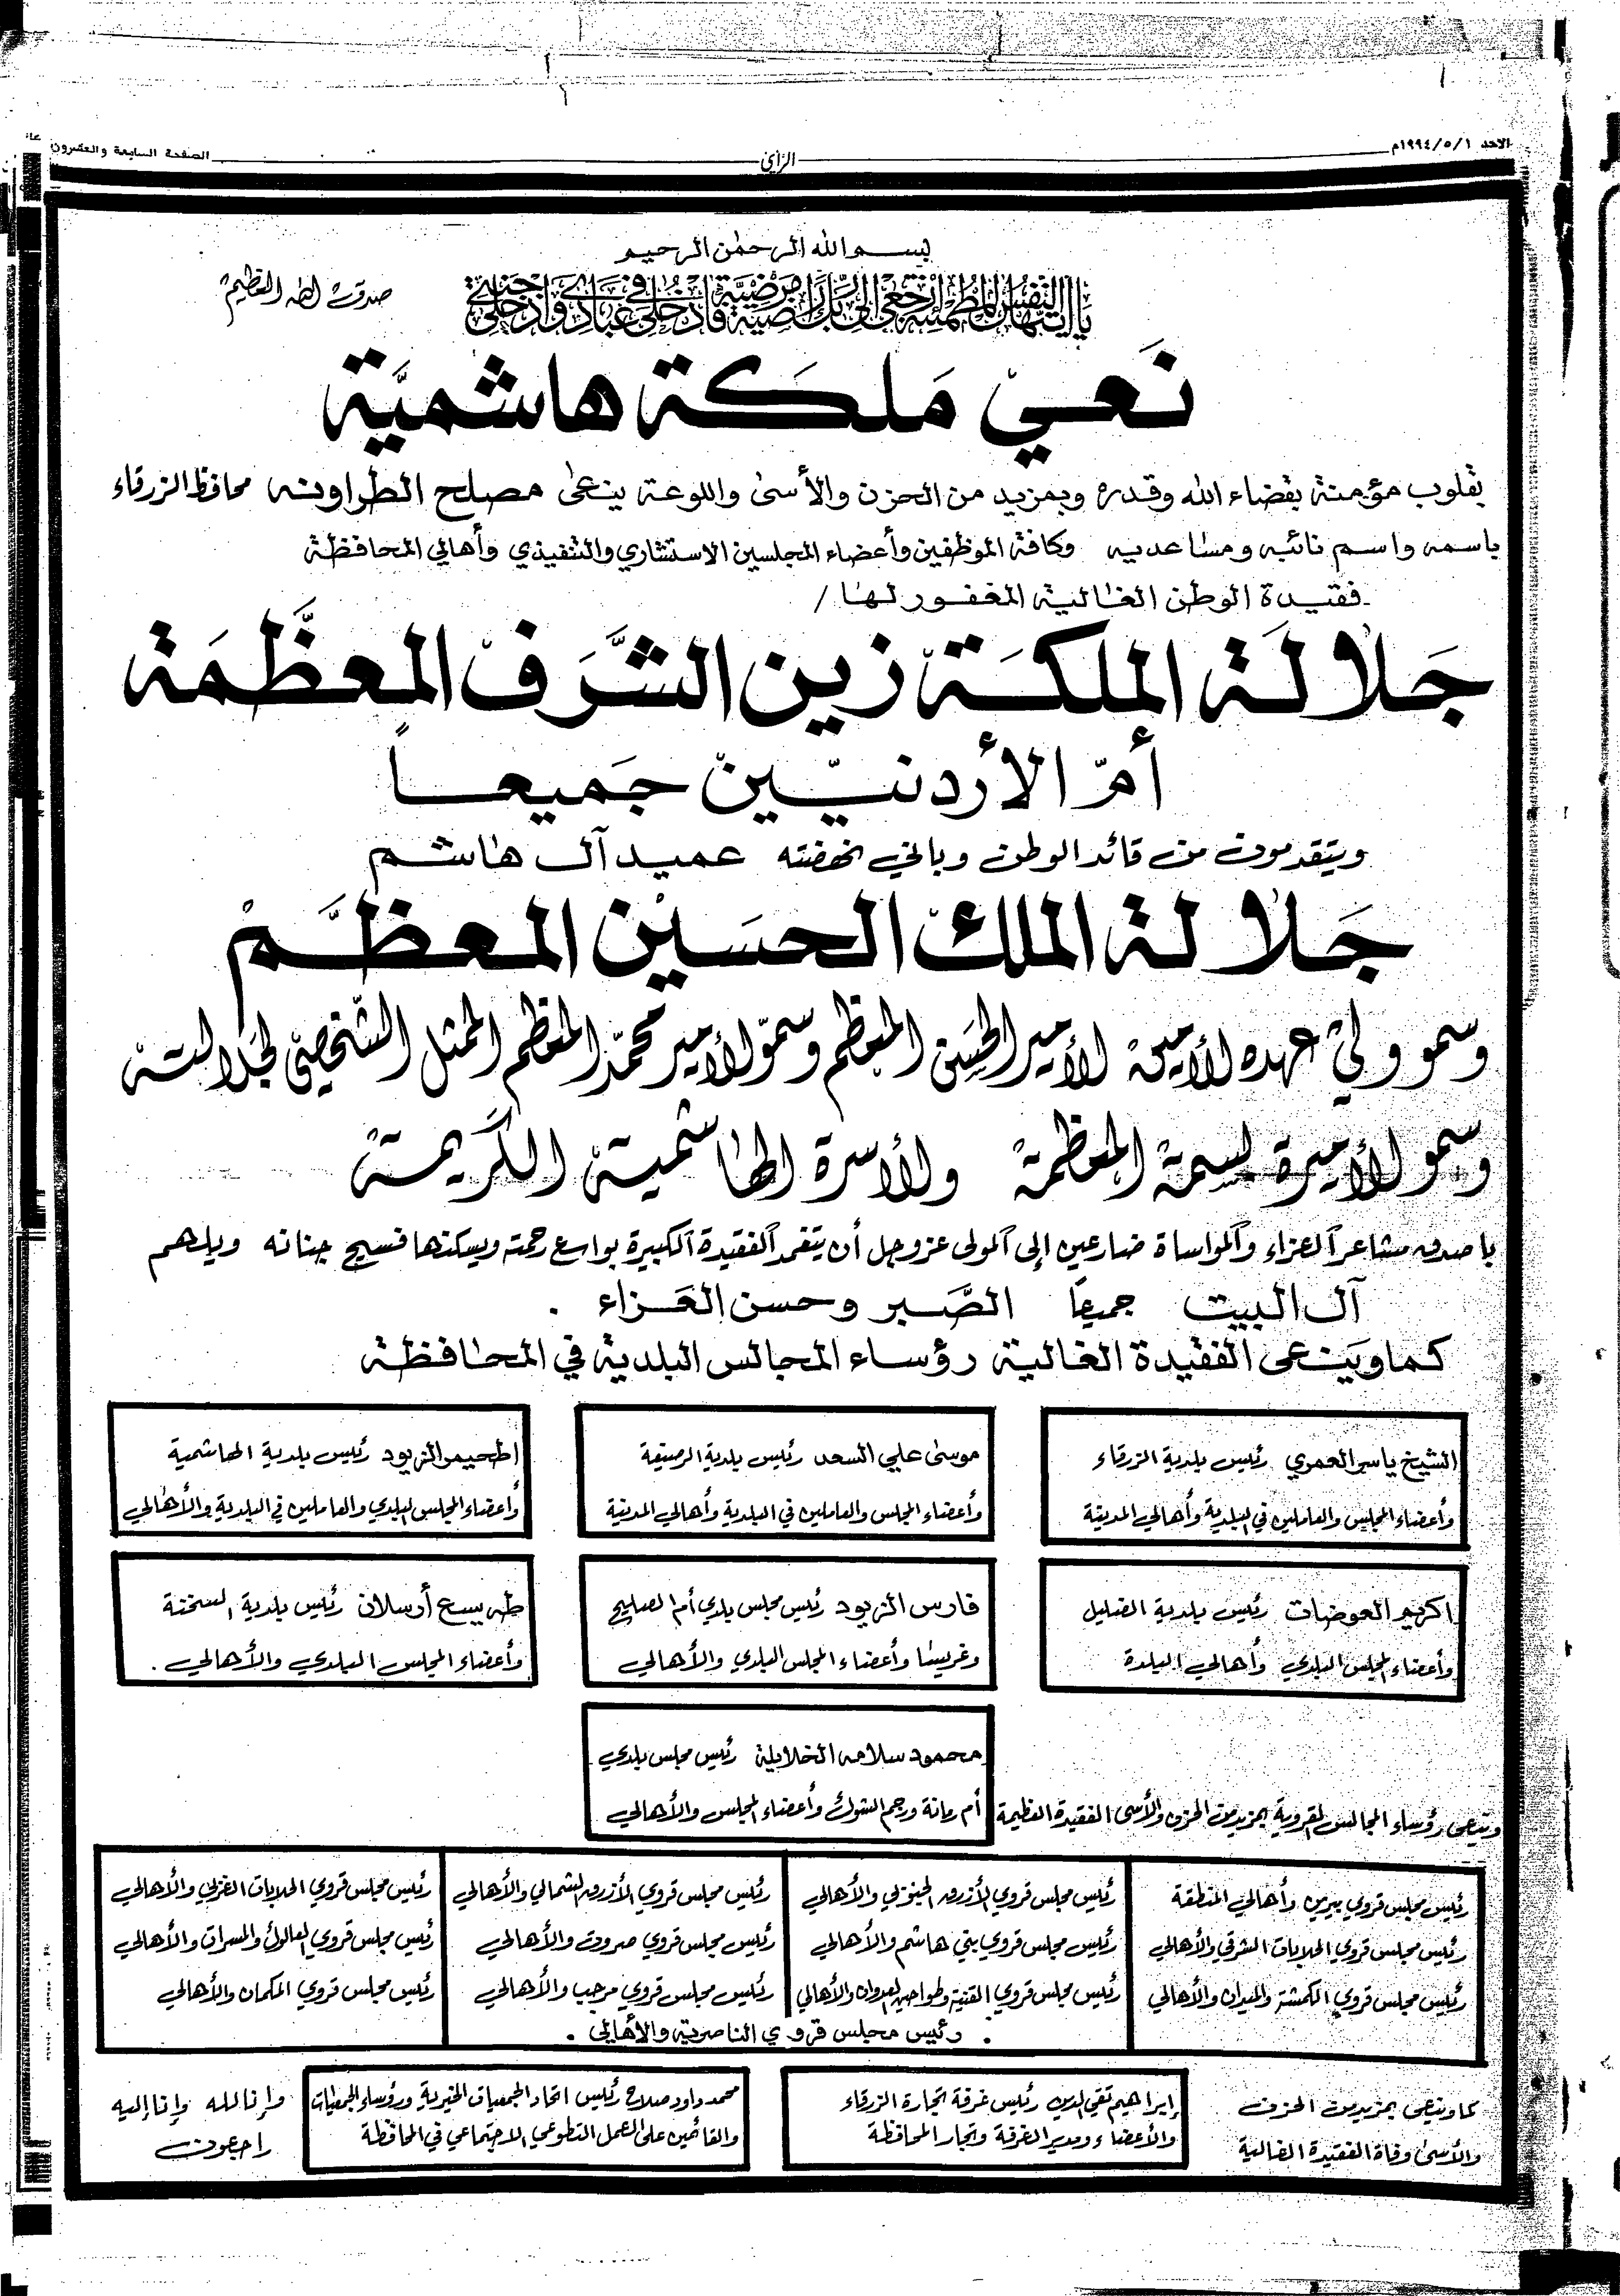 الاحد ١٩٩٤/٥/١م
الرأي
الصفحة السابعة والعشرون
بسم الله الرحمن الرحيم
يا أيتها النفس المطمئنة ارجعي إلى ربك راضية مرضية فادخلي في عبادي وادخلي جنتي
صدق الله العظيم
نَعي مَلكَة هاشميَّة
بقلوب مؤمنة بقضاء الله وقدره وبمزيد من الحزن والأسى واللوعة ينعى مصلح الطراونه محافظ الزرقاء
باسمه واسم نائبه ومساعديه وكافة الموظفين وأعضاء المجلسين الاستشاري والتنفيذي وأهالي المحافظة
فقيدة الوطن الغالية المغفور لها /
جَلالَة الملكَة زين الشَّرَف المعظَّمَة
أمّ الأردنيّين جَميعاً
ويتقدمون من قائد الوطن وباني نهضته عميد آل هاشم
جَلالة الملك الحسَين المعظَّم
وسمو ولي عهده الأمين الأمير الحسَن المعظم وسموّ الأمير محمّد المعظم الممثل الشخصيّ لجلالته
وسمو الأميرة بسمة المعظمة والأسرة الهاشمية الكريمة
باصدق مشاعر العزاء والمواساة ضارعين إلى المولى عزوجل أن يتغمد الفقيدة الكبيرة بواسع رحمته ويسكنها فسيح جنانه ويلهم
آل البيت جميعاً الصَّبر وحسن العَزاء .
كما وينعى الفقيدة الغالية رؤساء المجالس البلدية في المحافظة
الشيخ ياسر العمري رئيس بلدية الزرقاء
وأعضاء المجلس والعاملين في البلدية وأهالي المدينة
موسى علي السعد رئيس بلدية الرصيفة
وأعضاء المجلس والعاملين في البلدية وأهالي المدينة
اطحيمر الزيود رئيس بلدية الهاشمية
وأعضاء المجلس البلدي والعاملين في البلدية والأهالي
اكريم العوضات رئيس بلدية الضليل
وأعضاء المجلس البلدي وأهالي البلدة
فارس الزيود رئيس مجلس بلدي أم الصليح
وغريسا وأعضاء المجلس البلدي والأهالي
طه يسع أرسلان رئيس بلدية السخنة
وأعضاء المجلس البلدي والأهالي .
محمود سلامه الخلايلة رئيس مجلس بلدي
أم رمانة ورجم الشوك وأعضاء المجلس والأهالي
وينعى رؤساء المجالس القروية بمزيد من الحزن والأسى الفقيدة العظيمة
رئيس مجلس قروي بيرين وأهالي المنطقة
رئيس مجلس قروي الحلابات الشرقي والأهالي
رئيس مجلس قروي الكمشة والميدان والأهالي
رئيس مجلس قروي الأزرق الجنوبي والأهالي
رئيس مجلس قروي بني هاشم والأهالي
رئيس مجلس قروي القنية وطواحين العدوان والأهالي
رئيس مجلس قروي الأزرق الشمالي والأهالي
رئيس مجلس قروي صروت والأهالي
رئيس مجلس قروي مرحب والأهالي
رئيس مجلس قروي الحلابات الغربي والأهالي
رئيس مجلس قروي العالوك والمسرات والأهالي
رئيس مجلس قروي المكمان والأهالي
. رئيس مجلس قروي الناصرية والأهالي .
كما وينعى بمزيد من الحزن
والأسى وفاة الفقيدة الغالية
إبراهيم تقي الدين رئيس غرفة تجارة الزرقاء
والأعضاء ومدير الغرفة وتجار المحافظة
محمد داود صلاح رئيس اتحاد الجمعيات الخيرية ورؤساء الجمعيات
والقائمين على العمل التطوعي الاجتماعي في المحافظة
وإنا لله وإنا إليه
راجعون